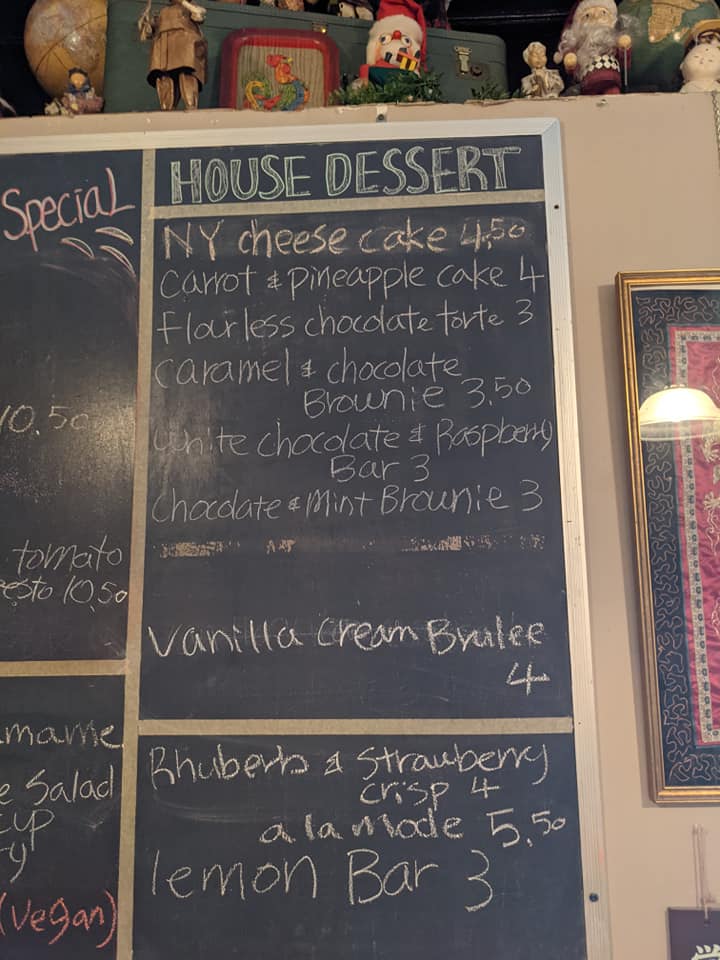 Special
10.50
tomato
esto 10.50
mame
e Salad
cup
ry
(vegan)
HOUSE DESSERT
NY cheese cake 4.50
Carrot & Pineapple cake 4
flourless chocolate torte 3
caramel & chocolate
Brownie 3.50
White chocolate & Raspberry
Bar 3
Chocolate & Mint Brownie 3
Vanilla Cream Brulee
4
Rhuberb & Strawberry
crisp 4
a la mode 5.50
lemon Bar 3